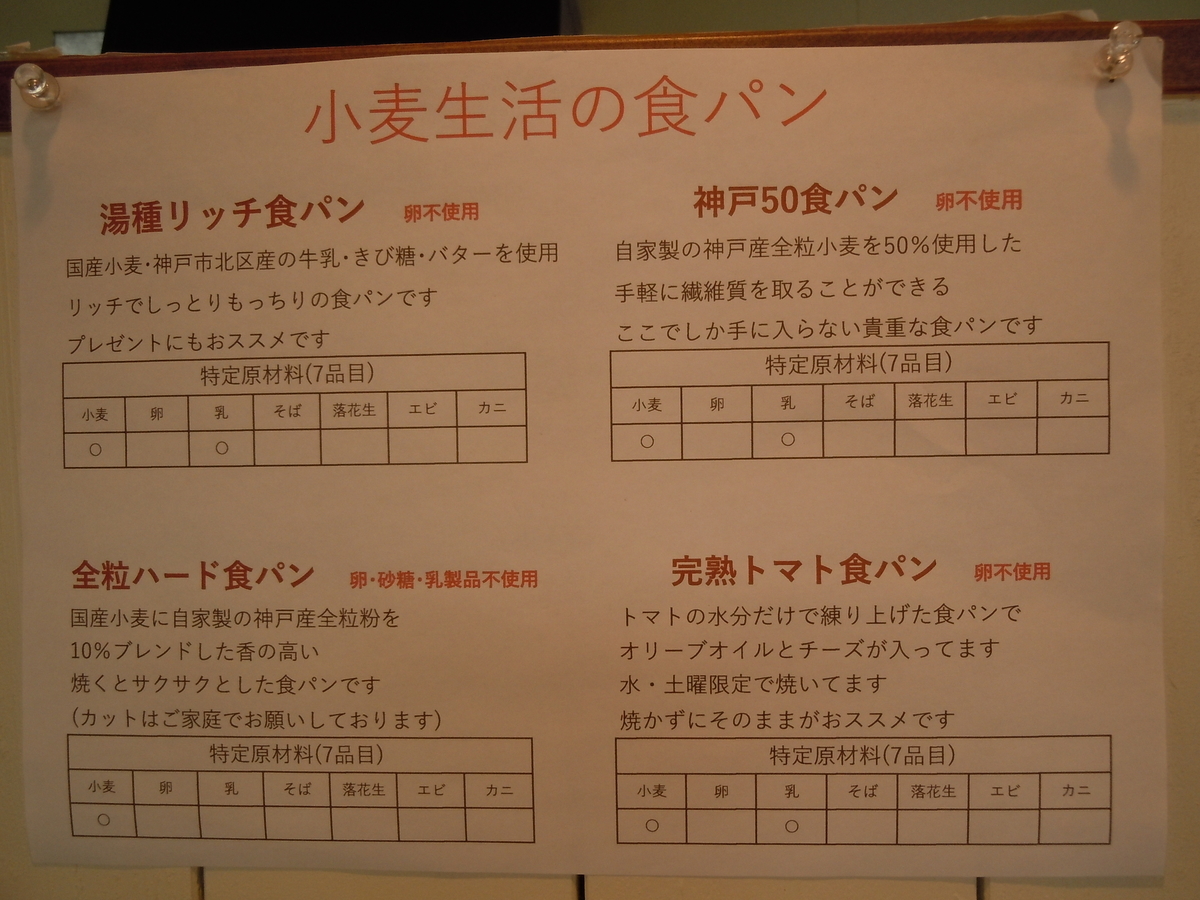 小麦生活の食パン
湯種リッチ食パン 卵不使用
国産小麦・神戸市北区産の牛乳・きび糖・バターを使用
リッチでしっとりもっちりの食パンです
プレゼントにもおススメです
特定原材料(7品目)
小麦 卵 乳 そば 落花生 エビ カニ
○ ○
神戸50食パン 卵不使用
自家製の神戸産全粒小麦を50%使用した
手軽に繊維質を取ることができる
ここでしか手に入らない貴重な食パンです
特定原材料(7品目)
小麦 卵 乳 そば 落花生 エビ カニ
○ ○
全粒ハード食パン 卵・砂糖・乳製品不使用
国産小麦に自家製の神戸産全粒粉を
10%ブレンドした香の高い
焼くとサクサクとした食パンです
(カットはご家庭でお願いしております)
特定原材料(7品目)
小麦 卵 乳 そば 落花生 エビ カニ
○
完熟トマト食パン 卵不使用
トマトの水分だけで練り上げた食パンで
オリーブオイルとチーズが入ってます
水・土曜限定で焼いてます
焼かずにそのままがおススメです
特定原材料(7品目)
小麦 卵 乳 そば 落花生 エビ カニ
○ ○